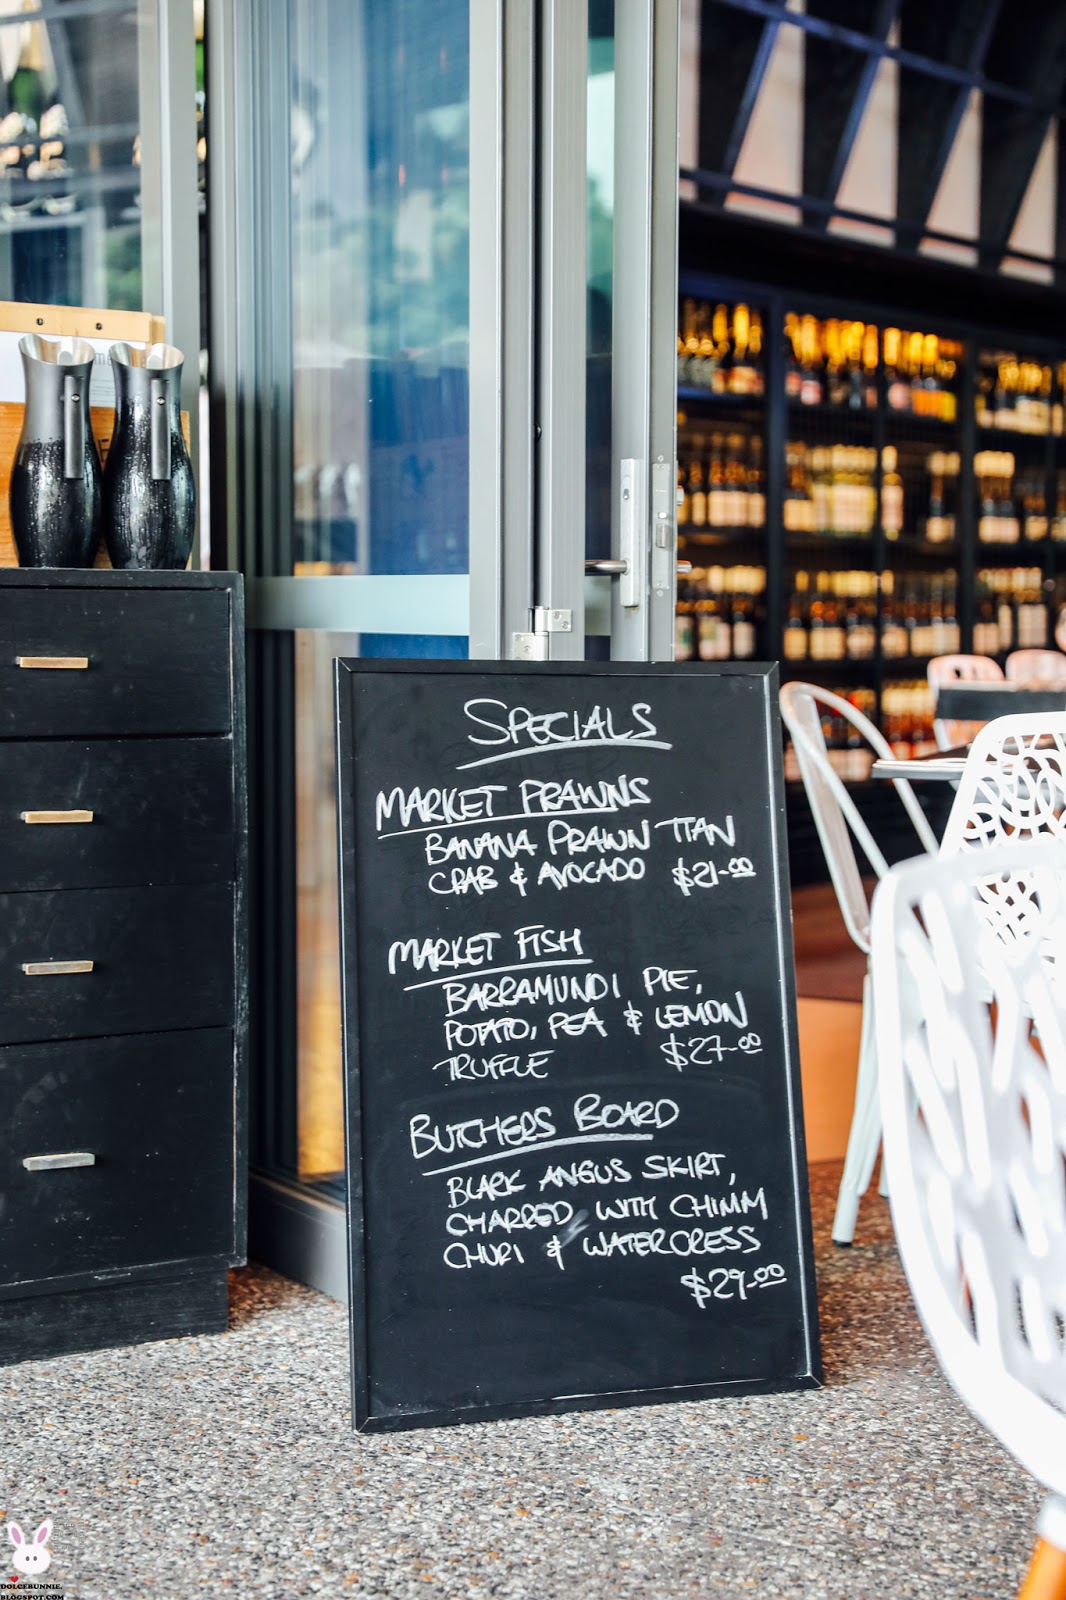 SPECIALS
MARKET PRAWNS
BANANA PRAWN TIAN
CRAB & AVOCADO $21-00
MARKET FISH
BARRAMUNDI PIE,
POTATO, PEA & LEMON
TRUFFLE $27-00
BUTCHERS BOARD
BLACK ANGUS SKIRT,
CHARRED WITH CHIMM
CHURI & WATERCRESS
$29-00
DOLCEBUNNIE.
BLOGSPOT.COM